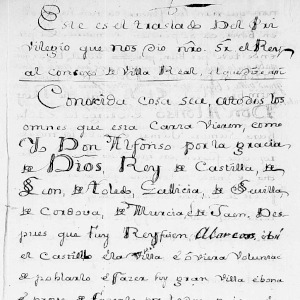 Este es el traslado Del Pri
vilegio que nos dio nro. Sr. el Rey
al consejo de Villa Real, el que dice asi
Conoscida cosa sea atodos los
omnes que esta Carra vieron, como
Y. Don Alfonso por la gracia
de Dios, Rey de Castilla, de
Leon, de Toledo, Galicia, de Sevilla,
de Cordova, de Murcia, é de Jaen. Des
pues que fuy Rey fuien, Alarcos, ibi
el Castillo é la Villa é oviera Voluntad
de poblarlo é fazer hy gran Villa é bona